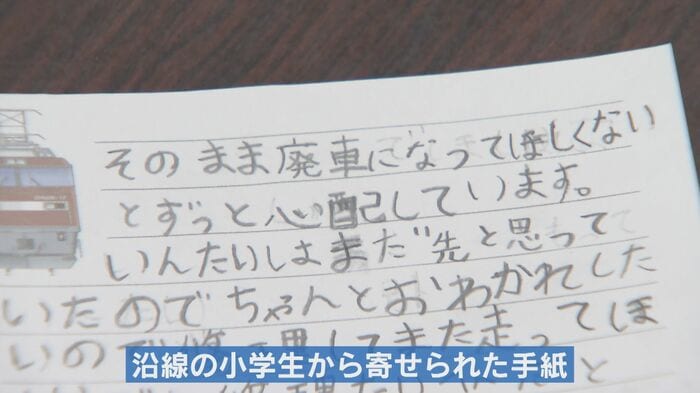 そのまま廃車になってほしくない
とずっと心配しています。
いんたいしはまだ先と思って
いたのでちゃんとおわかれした
いの
してまた走ってほ
と
沿線の小学生から寄せられた手紙